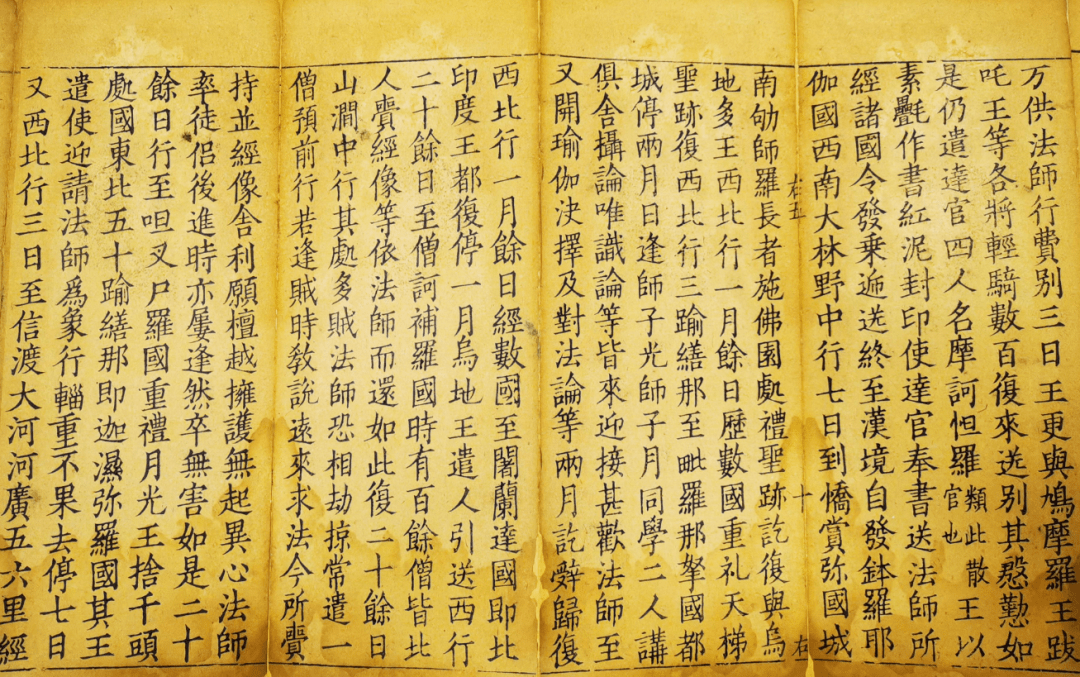 万供法師行費別三日王更與鳩摩羅王跋
吒王等各將輕騎數百復來送別其慇懃如
是仍遣達官四人名摩訶怛羅類此散官也王以
素氎作書紅泥封印使達官奉書送法師所
經諸國令發乗遞送終至漢境自發鉢羅耶
伽國西南大林野中行七日到憍賞弥國城
右五 十 右
南劬師羅長者施佛園處禮聖跡訖復與烏
地多王西北行一月餘日歷數國重礼天梯
聖跡復西北行三踰繕那至毗羅那拏國都
城停兩月日逢師子光師子月同學二人講
俱舍攝論唯識論等皆來迎接甚歡法師至
又開瑜伽決擇及對法論等兩月訖辭歸復
西北行一月餘日經數國至闍蘭達國即北
印度王都復停一月烏地王遣人引送西行
二十餘日至僧訶補羅國時有百餘僧皆北
人賷經像等依法師而還如此復二十餘日
山澗中行其處多賊法師恐相劫掠常遣一
僧預前行若逢賊時教說遠來求法今所賷
持並經像舍利願檀越擁護無起異心法師
率徒侶後進時亦屢逢然卒無害如是二十
餘日行至呾叉尸羅國重禮月光王捨千頭
處國東北五十踰繕那即迦濕弥羅國其王
遣使迎請法師爲象行輜重不果去停七日
又西北行三日至信渡大河河廣五六里經